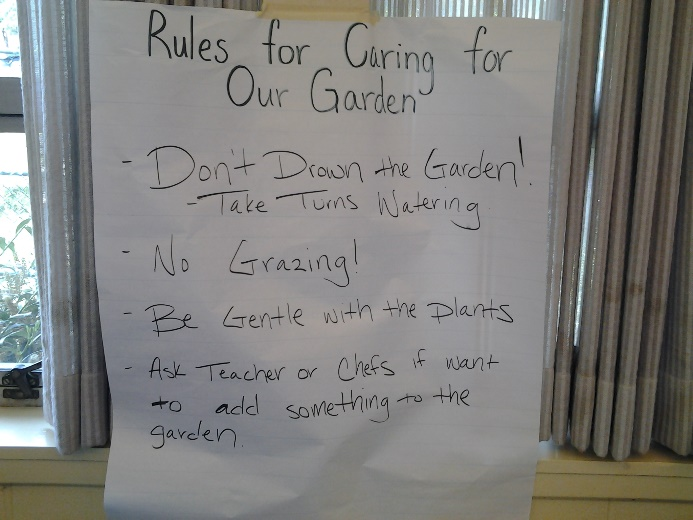 Rules for Caring for
Our Garden
- Don't Drown the Garden!
- Take Turns Watering
- No Grazing!
- Be Gentle with the Plants
- Ask Teacher or Chefs if want
to add something to the
garden.